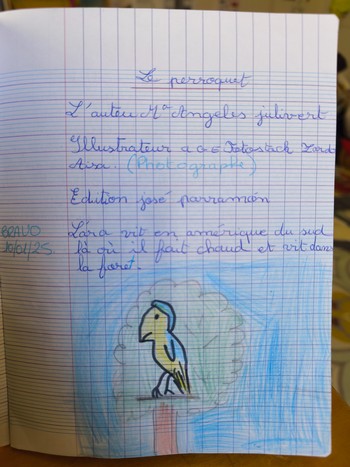 Le perroquet
L'auteu Mª Angeles julivert
Illustrateur a.g.e Fotostock Zardo
Aisa. (Photographe)
Edition josé parramón
BRAVO
10/01/25.
L'ara vit en amérique du sud
là où il fait chaud et vit dans
la foret.